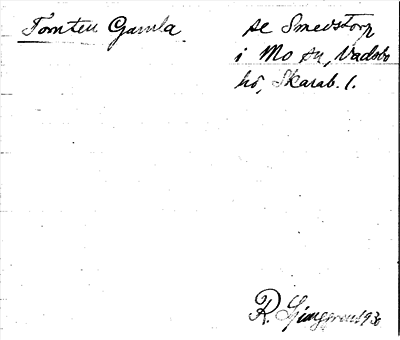 Tomten Gamla
se Smedstorp
i Mo sn, Vadsbo
hd, Skarab. l.
R. Ljunggren 193